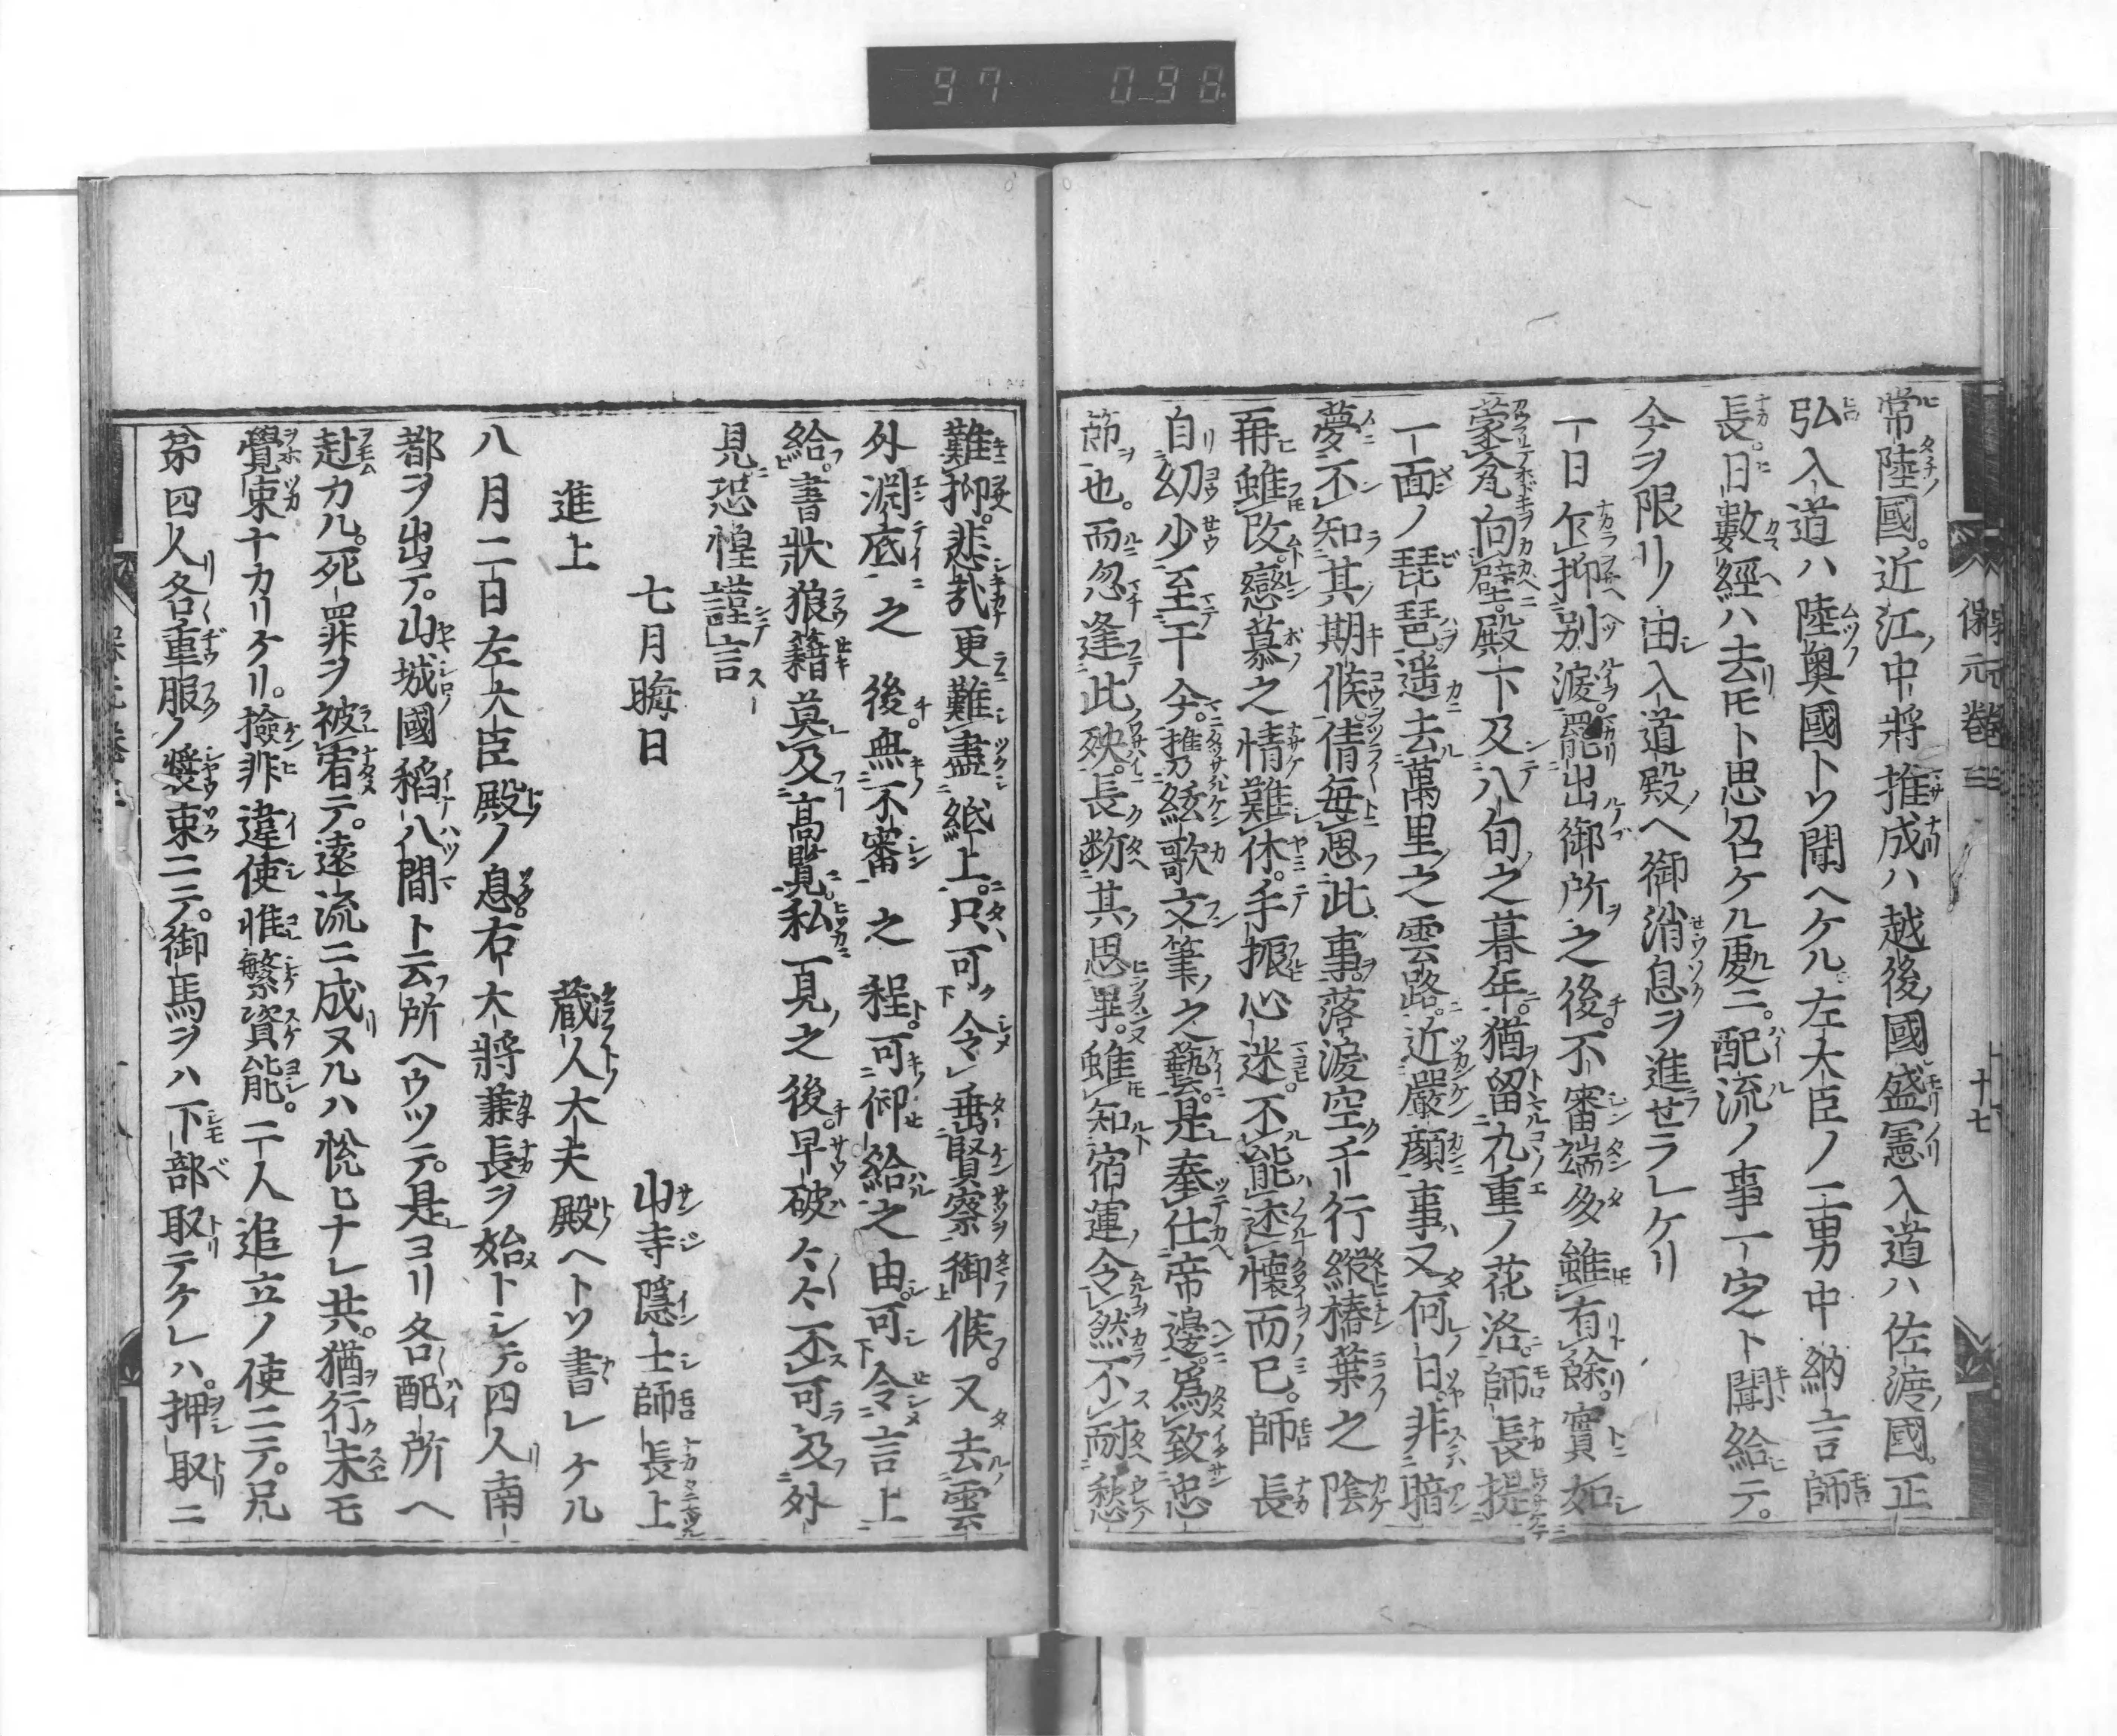 常陸國。近江ノ中將推成ハ越後ノ國盛憲入道ハ佐渡ノ國。正
弘入道ハ陸奧國トソ聞ヘケル左大臣ノ二男中納言師
長。日數經ハ去モト思召ケル處ニ。配流ノ事一定ト聞給テ。
今ヲ限リノ由入道殿ヘ御消息ヲ進セラレケリ
一日乍抑別淚。罷出御所之後。不審端多雖有餘。實如
蒙瓮向壁。殿下及八旬之暮年。猶留九重ノ花洛。師長提
一面ノ琵琶遥去萬里之雲路。近嚴顔事又何日。非暗
夢不知其期候。倩每思此事。落淚空千行縱椿葉之陰
再雖改。戀慕之情難休。手振心迷。不能述懷而已。師長
自幼少至于今。携絃歌文筆之藝。是奉仕帝邊。爲致忠
節也。而忽逢此殃。長断其思畢。雖知宿運令然不耐愁
難抑。悲哉更難盡紙上。只可令垂賢察御候。又去雲
外淵底之後。無不審之程。可仰給之由。可令言上
給。書狀狼籍莫及高覽。私一見之後。早破々々不可及外
見恐惶謹言
七月晦日
山寺隱士師長上
進上
蔵人大夫殿ヘトソ書レケル
八月二日左大臣殿ノ息。右大將兼長ヲ始トシテ。四人南
都ヲ出テ。山城國稻八間ト云所ヘウツテ。是ヨリ各配所ヘ
赴カル。死罪ヲ被宥テ。遠流ニ成ヌルハ恱ヒナレ共。猶行末モ
覺束ナカリケリ。撿非違使惟繁資能。二人追立ノ使ニテ。兄
弟四人各重服ノ裝束ニテ。御馬ヲハ下部取テケレハ。押取ニ
保元卷三
十七